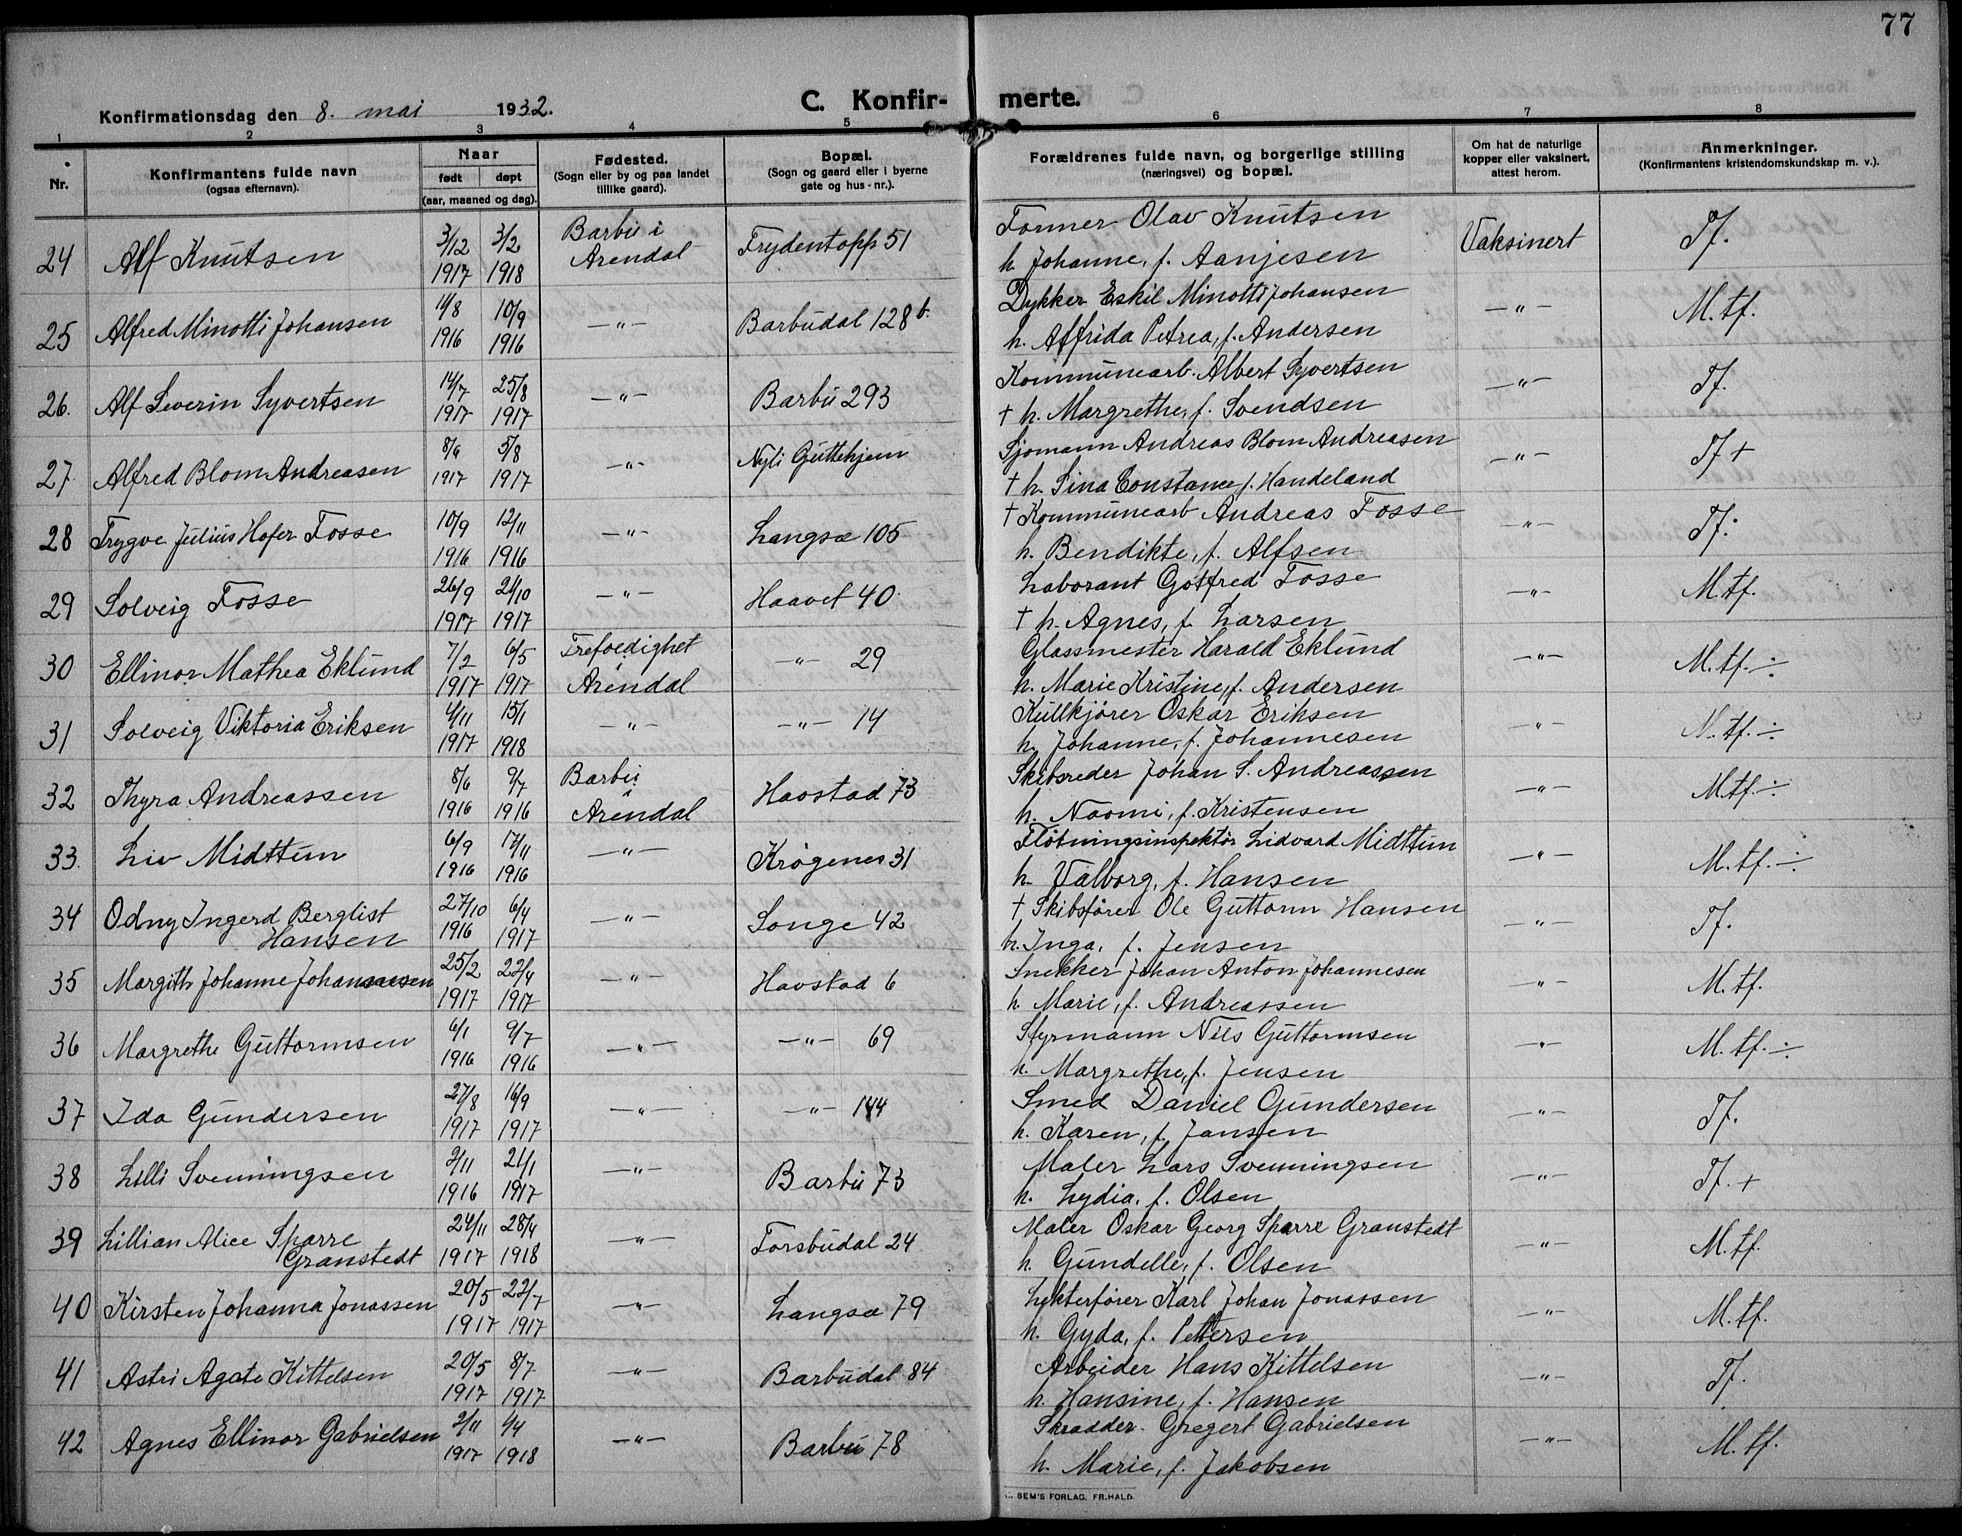 77
Konfirmationsdag den 8. mai 1932.
C. Konfirmerte.
1 2 3 4 5 6 7 8
Nr.
Konfirmantens fulde navn
(ogsaa efternavn).
Naar
født døpt
(aar, maaned og dag).
Fødested.
(Sogn eller by og paa landet
tillike gaard).
Bopæl.
(Sogn og gaard eller i byerne
gate og hus-nr.).
Forældrenes fulde navn, og borgerlige stilling
(næringsvei) og bopæl.
Om hat de naturlige
kopper eller vaksinert,
attest herom.
Anmerkninger.
(Konfirmantens kristendomskundskap m. v.).
24 Alf Knutsen 3/12 1917 3/2 1918 Barbu i Arendal Frydentopp 51 Former Olav Knutsen Vaksinert Tf.
h. Johanne, f. Aanjesen
25 Alfred Minotti Johansen 11/8 1916 10/9 1916 —"— Barbudal 128 b. Dykker Eskil Minotti Johansen —"— M.tf.
h. Affrida Petrea, f. Andersen
26. Alf Severin Syvertsen 14/7 1917 25/8 1917 —"— Barbu 293 Kommunearb. Albert Syvertsen —"— Tf.
† h. Margrethe, f. Svendsen
27. Alfred Blom Andreasen 8/6 1917 5/8 1917 —"— Nyli Guttehjem Sjømann Andreas Blom Andreasen —"— Tf +
† h. Sina Constance f. Handeland
28 Trygve Julius Hofer Fosse 10/9 1916 12/11 1916 —"— Langsæ 105 † Kommunearb Andreas Fosse —"— Tf.
h. Bendikte, f. Alfsen
29 Solveig Fosse 26/9 1917 21/10 1917 —"— Haavet 40. Laborant Gotfred Fosse —"— M.tf.
† h. Agnes, f. Larsen
30 Ellinor Mathea Eklund 7/2 1917 6/5 1917 Trefoldighet Arendal —"— 29 Glassmester Harald Eklund —"— M.tf. ÷
h. Marie Kristine, f. Andersen
31 Solveig Viktoria Eriksen 4/11 1917 15/1 1918 —"— —"— 14 Kullkjører Oskar Eriksen —"— M.tf. ÷
h. Johanne, f. Johannesen
32 Thyra Andreassen 8/6 1916 9/7 1916 Barbu i Arendal Havstad 73 Skibsreder Johan S. Andreassen —"— M.tf. ÷
h. Naomi, f. Kristensen
33. Liv Midttun 6/9 1916 17/11 1916 —"— Krøgenes 31 Fløtningsinspektør Lidvard Midttun —"— M.tf. ÷
h. Valborg, f. Hansen
34 Odny Ingerd Berglist Hansen 27/10 1916 6/4 1917 —"— Songe 42 † Skibsfører Ole Guttorm Hansen —"— Tf.
h. Inga, f. Jensen
35 Margith Johanne Johannesen 25/2 1917 22/4 1917 —"— Havstad 6 Snekker Johan Anton Johannesen —"— M.tf.
h. Marie, f. Andreassen
36 Margrethe Guttormsen 6/1 1916 9/7 1916 —"— —"— 69 Styrmann Nils Guttormsen —"— M.tf. ÷
h. Margrethe, f. Jensen
37 Ida Gundersen 27/8 1917 16/9 1917 —"— —"— 144 Smed Daniel Gundersen —"— Tf.
h. Karen, f. Jansen
38 Lilli Svenningsen 2/11 1916 21/1 1917 —"— Barbu 73 Maler Lars Svenningsen —"— Tf. +
h. Lydia, f. Olsen
39 Lillian Alice Sparre Granstedt 24/11 1917 28/4 1918 —"— Forsbudal 24 Maler Oskar Georg Sparre Granstedt —"— M.tf.
h. Gundelle, f. Olsen
40 Kirsten Johanna Jonassen 20/5 1917 22/7 1917 —"— Langsæ 79 Lekterfører Karl Johan Jonassen —"— M.tf.
h. Gyda, f. Pettersen
41 Astri Agate Kittelsen 20/5 1917 8/7 1917 —"— Barbudal 84 Arbeider Hans Kittelsen —"— Tf.
h. Hansine, f. Hansen
42 Agnes Ellinor Gabrielsen 2/11 1917 4/4 1918 —"— Barbu 78 Skradder Gregert Gabrielsen —"— M.tf.
h. Marie, f. Jakobsen
SEM'S FORLAG. FR.HALD.